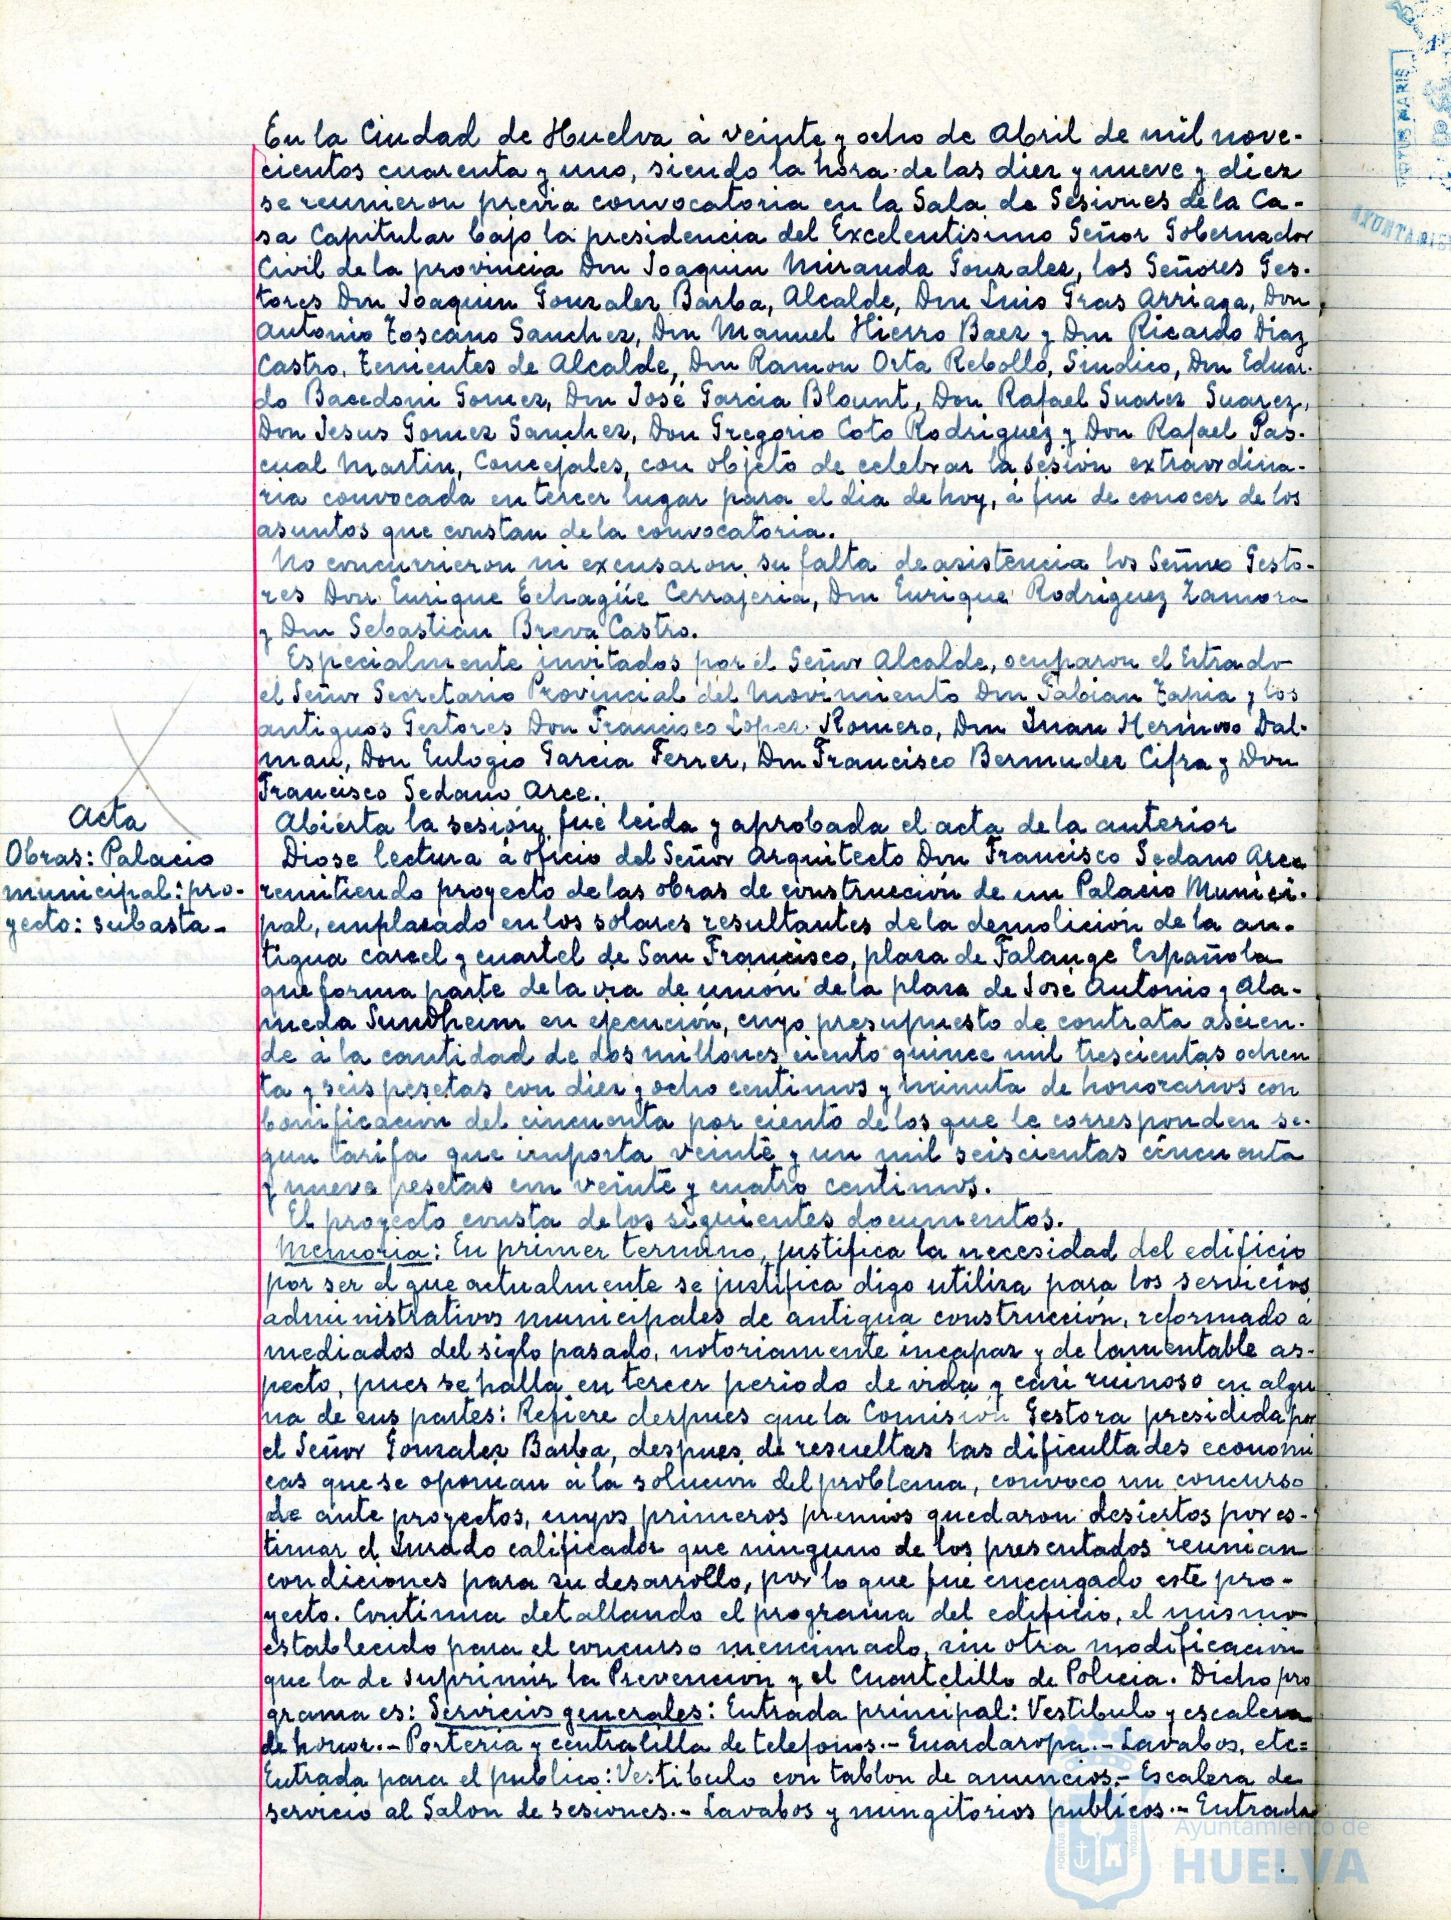 En la Ciudad de Huelva á veinte y ocho de Abril de mil nove-
cientos cuarenta y uno, siendo la hora de las diez y nueve y diez
se reunieron previa convocatoria en la Sala de Sesiones de la Ca-
sa Capitular bajo la presidencia del Excelentisimo Señor Gobernador
Civil de la provincia Don Joaquin Miranda Gonzalez, los Señores Ges-
tores Don Joaquin Gonzalez Barba, Alcalde, Don Luis Gras Arriaga, Don
Antonio Toscano Sanchez, Don Manuel Hierro Baez y Don Ricardo Diaz
Castro, Tenientes de Alcalde, Don Ramon Orta Rebollo, Sindico, Don Eduar-
do Bacedoni Gomez, Don José Garcia Blount, Don Rafael Suarez Suarez,
Don Jesus Gomez Sanchez, Don Gregorio Coto Rodriguez y Don Rafael Pas-
cual Martin, Concejales, con objeto de celebrar la sesión extraordina-
ria convocada en tercer lugar para el dia de hoy, á fin de conocer de los
asuntos que constan de la convocatoria.
No concurrieron ni excusaron su falta de asistencia los Señores Gesto-
res Don Enrique Echagüe Cerrajeria, Don Enrique Rodriguez Zamora
y Don Sebastian Breva Castro.
Especialmente invitados por el Señor Alcalde, ocuparon el Estrado
el Señor Secretario Provincial del Movimiento Don Fabian Tapia y los
antiguos Gestores Don Francisco Lopez Romero, Don Juan Hermoso Dal-
mau, Don Eulogio Garcia Ferrer, Don Francisco Bermudez Cifra y Don
Francisco Sedano Arce.
Acta
Abierta la sesión fué leida y aprobada el acta de la anterior
Obras: Palacio
municipal: pro-
yecto: subasta-
Diose lectura á oficio del Señor Arquitecto Don Francisco Sedano Arce
remitiendo proyecto de las obras de construcción de un Palacio Munici-
pal, emplazado en los solares resultantes de la demolición de la an-
tigua carcel y cuartel de San Francisco, plaza de Falange Española
que forma parte de la via de unión de la plaza de José Antonio y Ala-
meda Sundheim en ejecución, cuyo presupuesto de contrata ascien-
de á la cantidad de dos millones ciento quince mil trescientas ochen
ta y seis pesetas con diez y ocho centimos y minuta de honorarios con
bonificacion del cincuenta por ciento de los que le corresponden se-
gun tarifa que importa veinte y un mil seiscientas cincuenta
y nueve pesetas con veinte y cuatro centimos.
El proyecto consta de los siguientes documentos.
Memoria: En primer termino, justifica la necesidad del edificio
por ser el que actualmente se justifica digo utiliza para los servicios
administrativos municipales de antigua construcción, reformado á
mediados del siglo pasado, notoriamente incapaz y de lamentable as-
pecto, pues se halla en tercer periodo de vida y casi ruinoso en algu
na de sus partes: Refiere despues que la Comisión Gestora presidida por
el Señor Gonzalez Barba, despues de resueltas las dificultades economi
cas que se oponian á la solucion del problema, convoco un concurso
de ante proyectos, cuyos primeros premios quedaron desiertos por es-
timar el Jurado calificador que ninguno de los presentados reunian
condiciones para su desarrollo, por lo que fué encargado este pro-
yecto. Continua detallando el programa del edificio, el mismo
establecido para el concurso mencionado, sin otra modificación
que la de suprimir la Prevencion y el Cuartelillo de Policia. Dicho pro
grama es: Servicios generales: Entrada principal: Vestibulo y escalera
de honor.- Porteria y centralilla de telefonos.- Guardaropa.- Lavabos, etc=
Entrada para el publico: Vestibulo con tablon de anuncios.- Escalera de
servicio al Salon de sesiones.- Lavabos y mingitorios publicos.- Entrada
Ayuntamiento de
HUELVA